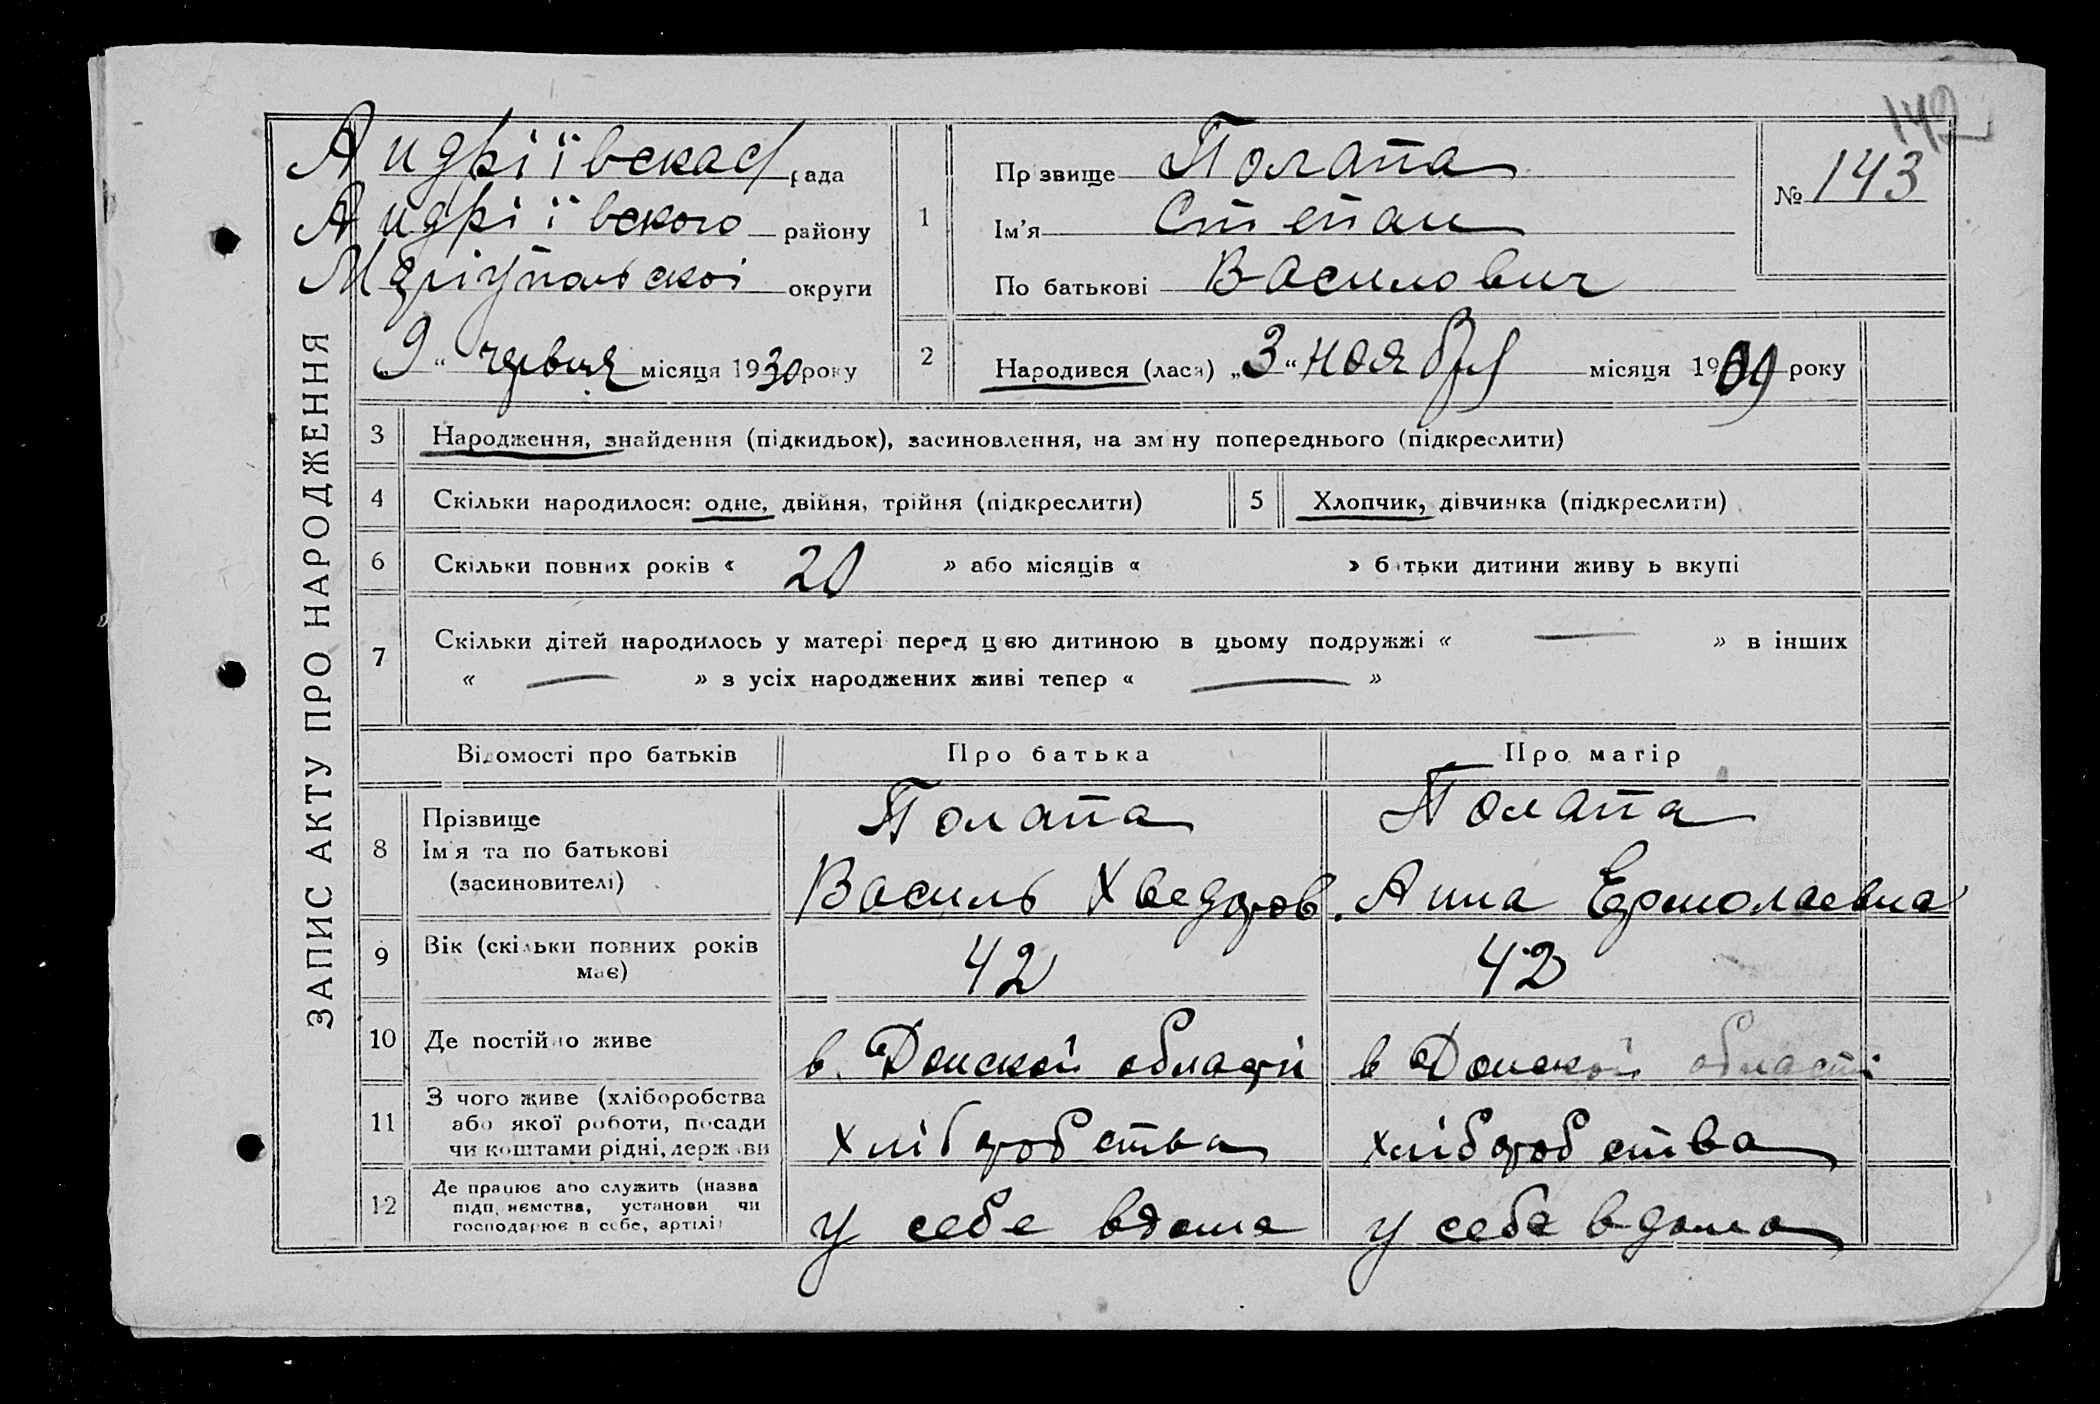 142
ЗАПИС АКТУ ПРО НАРОДЖЕННЯ
Андріївская рада
Андріївского району
Маріупольскоі округи
„9“ червня місяця 1930 року
1
Прізвище Полапа
Ім'я Степан
По батькові Василович
№ 143
2
Народився (лася) „3“ ноября місяця 1909 року
3 Народження, знайдення (підкидьок), засиновлення, на зміну попереднього (підкреслити)
4 Скільки народилося: одне, двійня, трійня (підкреслити) 5 Хлопчик, дівчинка (підкреслити)
6 Скільки повних років « 20 » або місяців « » батьки дитини живуть вкупі
7 Скільки дітей народилось у матері перед цією дитиною в цьому подружжі « — » в інших
« — » з усіх народжених живі тепер « — »
Відомості про батьків Про батька Про матір
8 Прізвище
Ім'я та по батькові
(засиновителі)
Полапа Полапа
Василь Хведоров. Анна Ермолаевна
9 Вік (скільки повних років
має)
42 42
10 Де постійно живе в Донскои області в Донскои області
11 З чого живе (хліборобства
або якої роботи, посади
чи коштами рідні, держави
хліборобства хліборобства
12 Де працює або служить (назва
підприємства, установи чи
господарює в себе, артілі)
у себе вдома у себе вдома